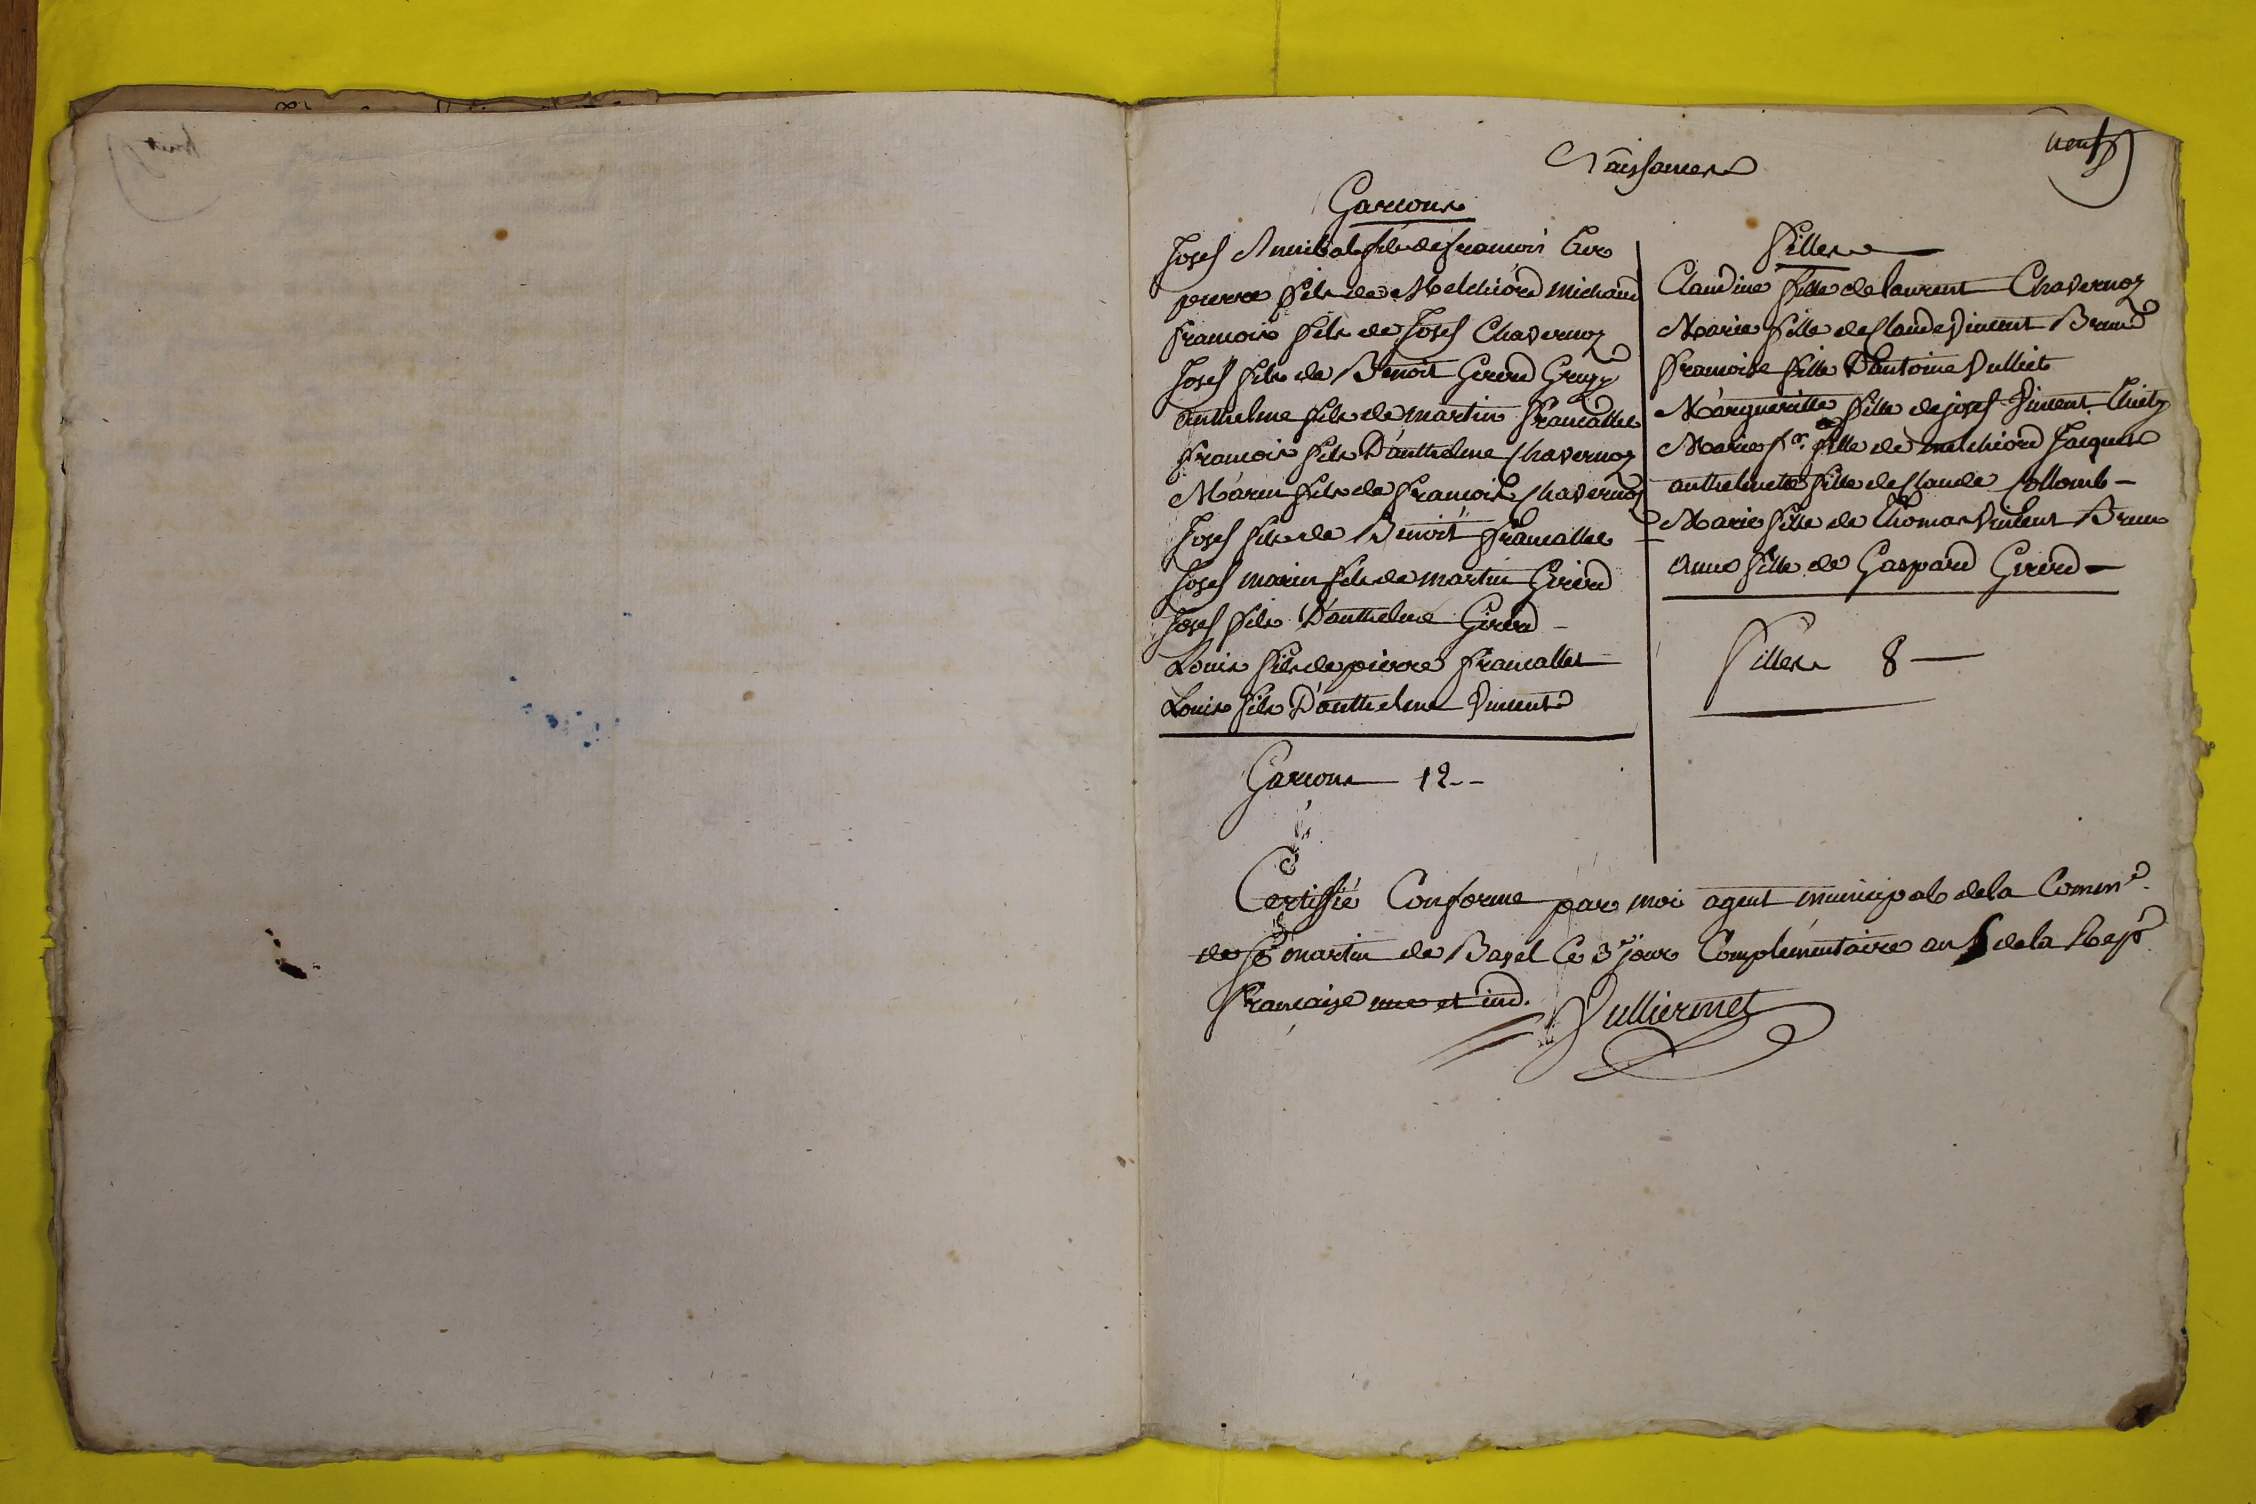 neuf
Naissances
Garcons
Josef Annibal fils de francois
pierre fils de Melchiord michaud
francois fils de Josef Chavernoz
Josef fils de Benoit Girerd Grugy
Anthelme fils de martin francallet
francois fils D'anthelme Chavernoz
Marin fils de francois Chavernoz
Josef fils de Benoit francallet
Josef marin fils de martin Girerd
Josef fils D'anthelme Girerd
Louis fils de pierre francallet
Louis fils D'anthelme Vincent
Garcons 12
filles
Claudine fille de laurent Chavernoz
Marie fille de Claude Vincent Brun
francoise fille D'antoine Vulliet
Margueritte fille de josef Vincent
Marie fse. fille de melchiord Jacquin
anthelmette fille de Claude Collomb
Marie fille de Thomas Vincent Brun
Anne fille de Gaspard Girerd
filles 8
Certiffié Conforme par moi agent municipal de la Commne.
de St martin de Bavel Ce 3e jour Complémentaire an 5 de la Rep.
francaise une et ind.
Vulliermet